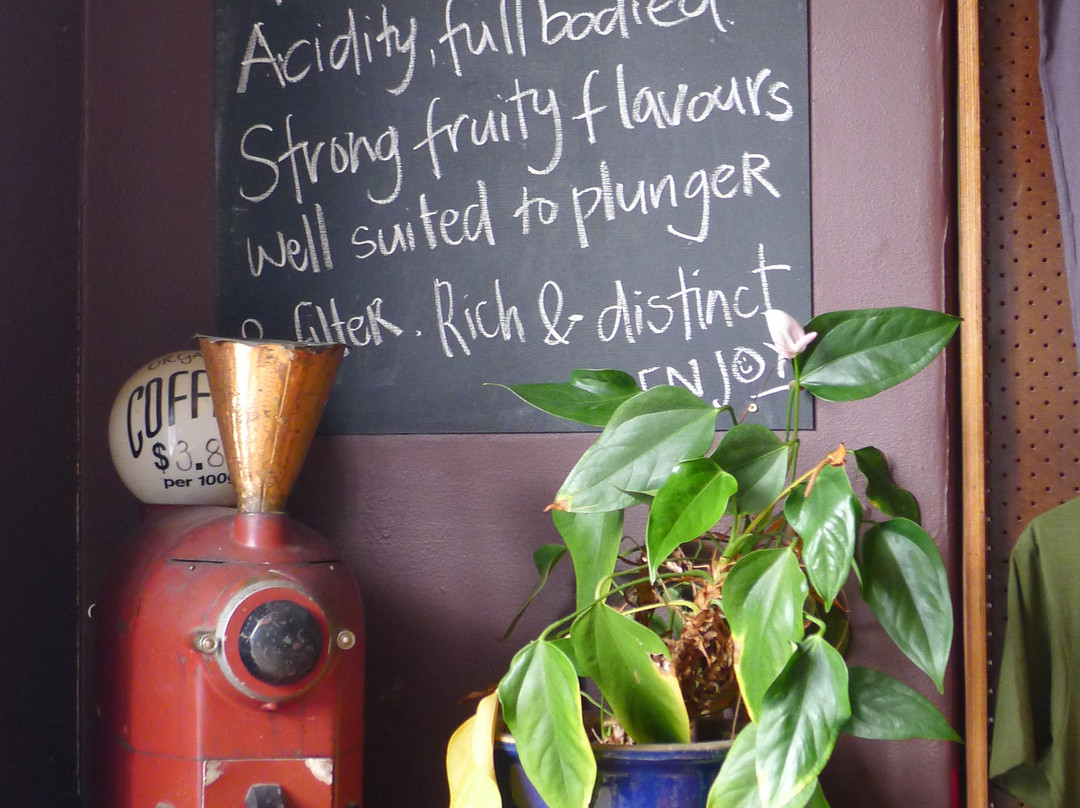 Acidity, full bodied.
Strong fruity flavours
well suited to plunger
& filter. Rich & distinct
ENJOY
COFF
$3.8
per 100g